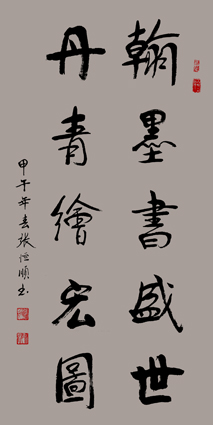 翰墨書盛世
丹青繪宏圖
甲午年春張恒順书